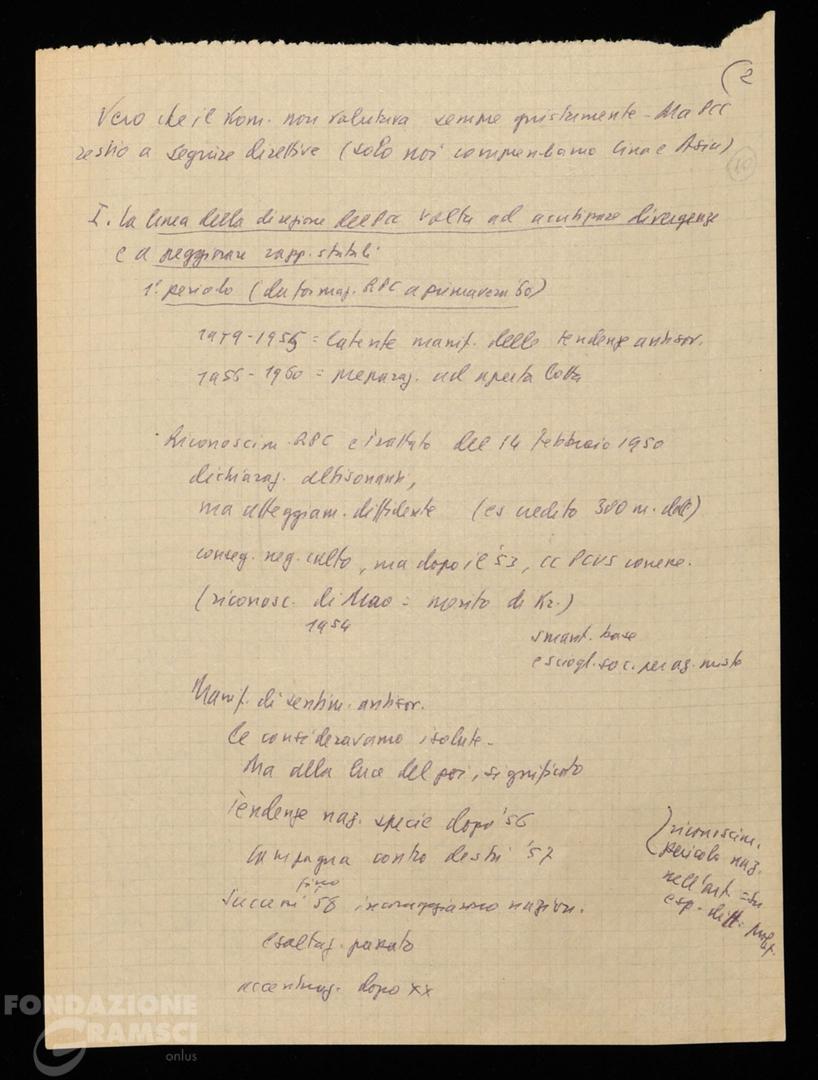 (2
Vero che il Kom. non valutava sempre giustamente - Ma PCC
restio a seguire direttive (solo noi comprendiamo Cina e Asia)
10
I. La linea della direzione del PCC volta ad acutizzare divergenze
e a peggiorare rapp. statali
1° periodo (da formaz. RPC a primavera '60)
1949-1955 = latente manif. delle tendenze antisov.
1956-1960 = preparaz. ad aperta lotta
Riconoscim. RPC e trattato del 14 febbraio 1950
dichiaraz. altisonanti,
ma atteggiam. diffidente (es credito 300 m. doll)
conseg. neg. culto, ma dopo il '53, CC PCUS
(riconosc. di Mao = merito di Kr.)
1954
smant. base
e sciogl. soc. per az. miste
Manif. di sentim. antisov.
le consideravamo isolate -
Ma alla luce del poi, significato
Tendenze naz. specie dopo '56
campagna contro destri '57
fino
'58 nazion.
esaltaz. passato
accentuaz. dopo XX
riconoscim.
pericolo naz.
nell'art. = su
esp. ditt.
FONDAZIONE
GRAMSCI
onlus